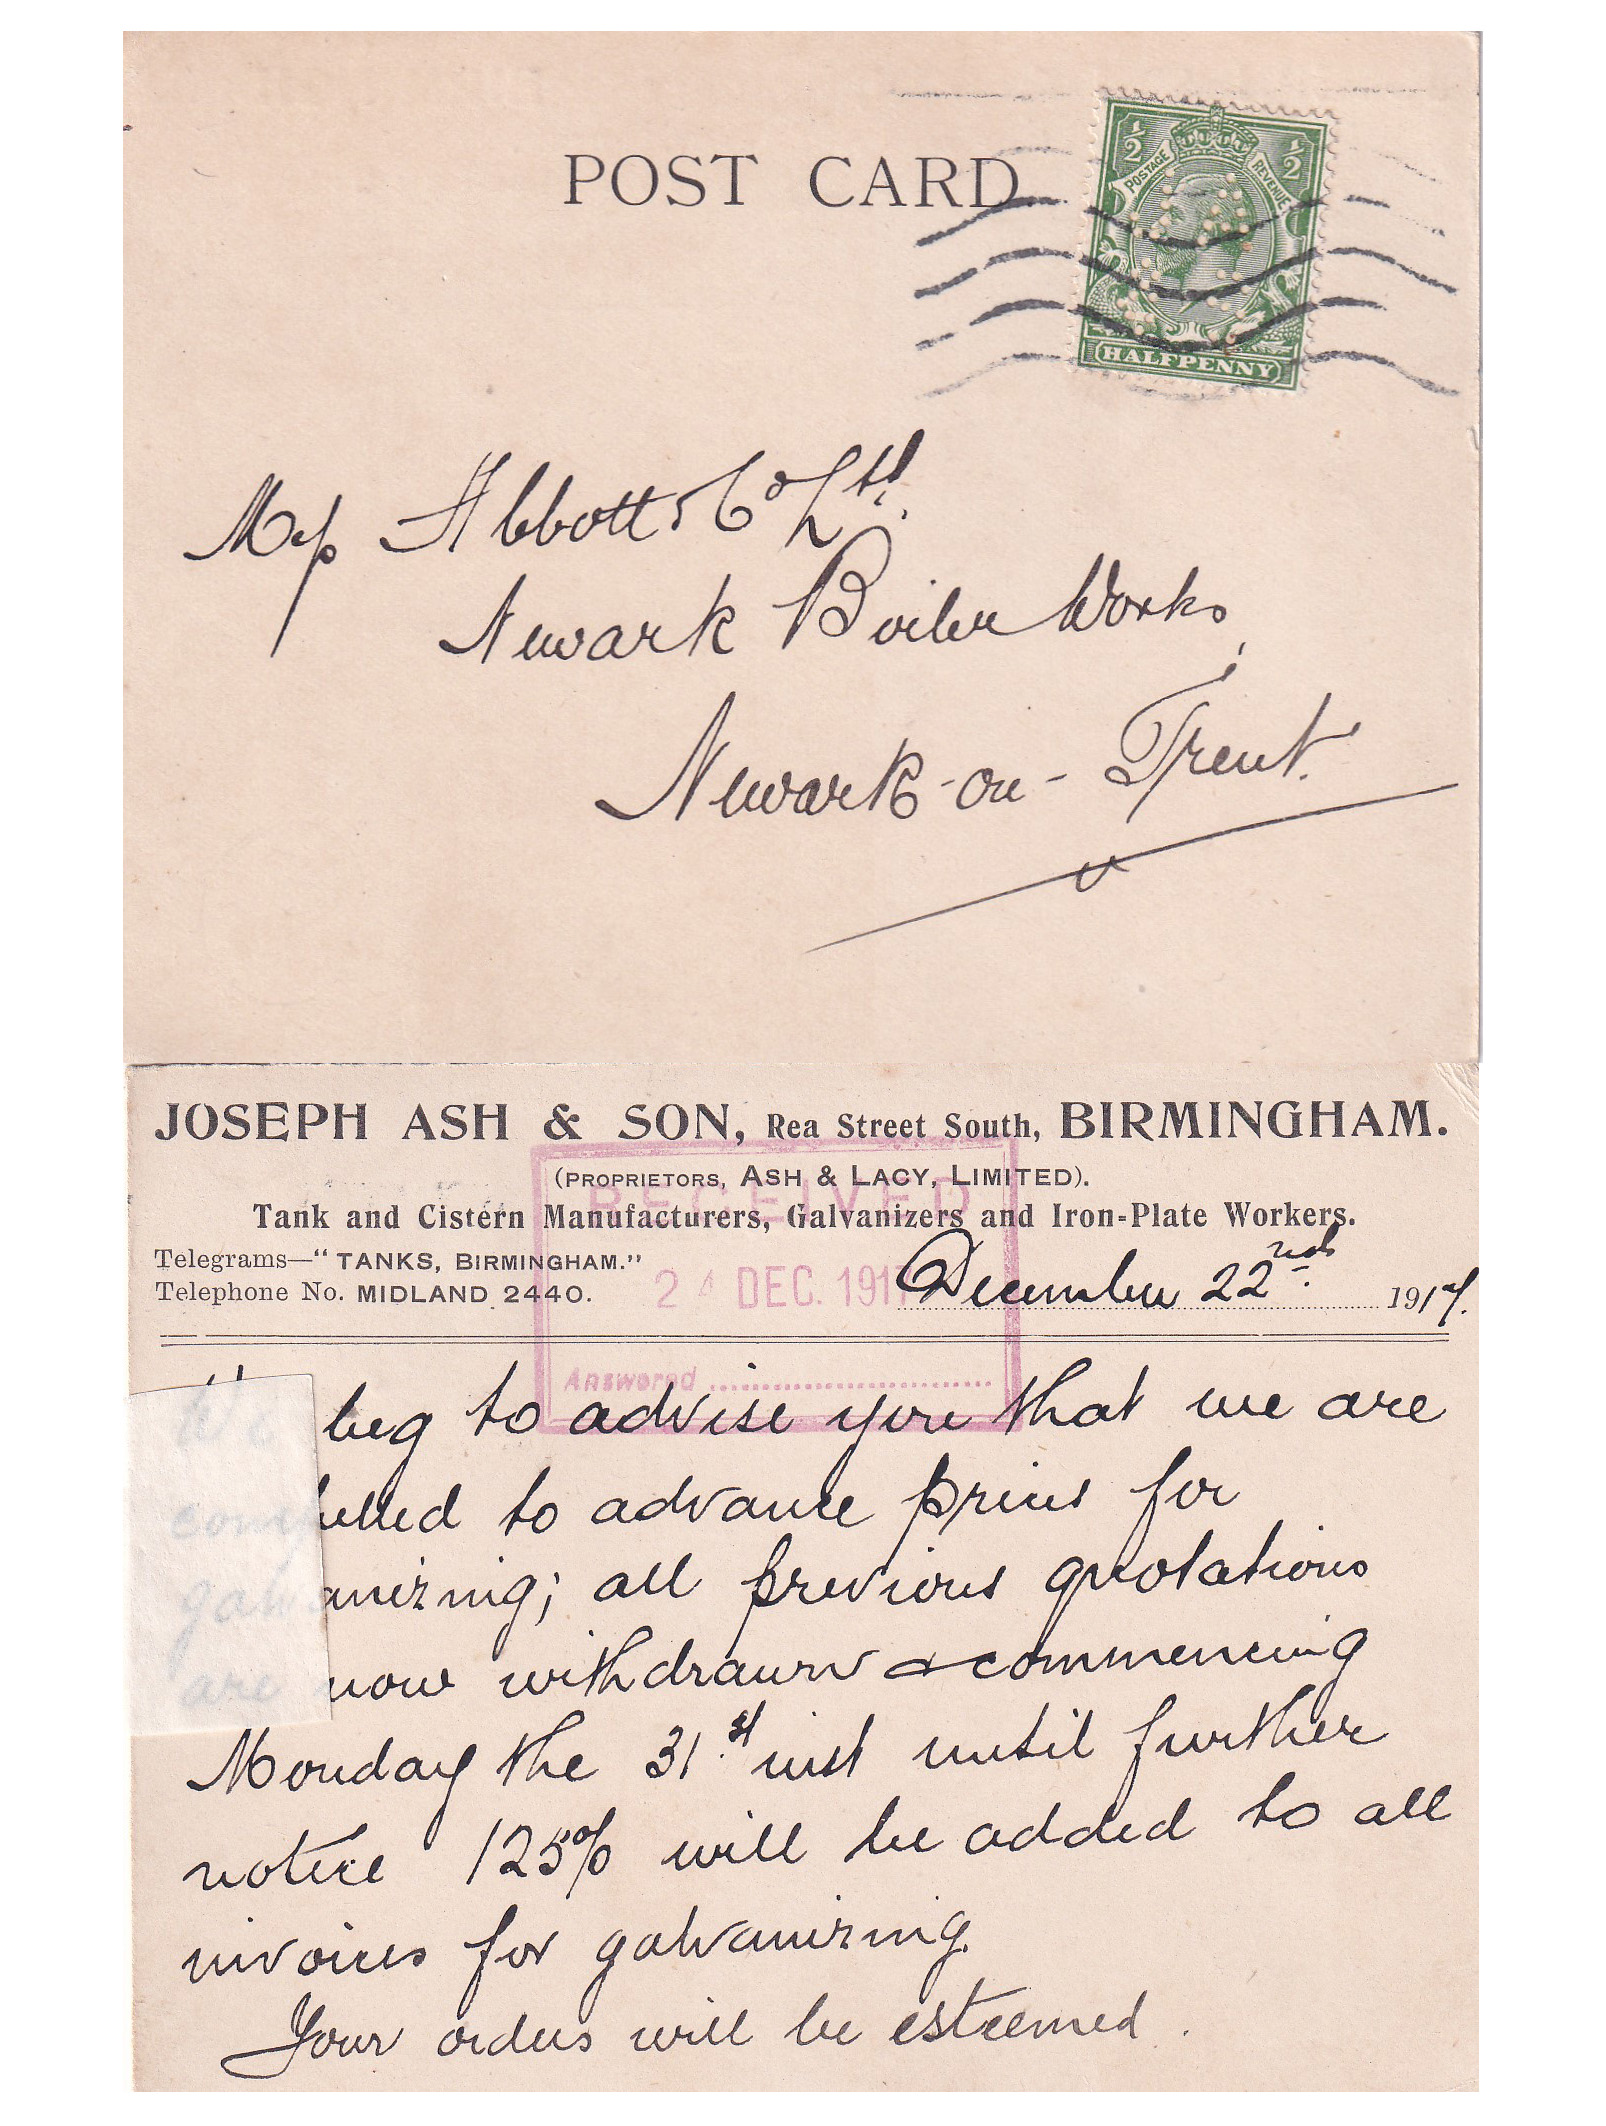 POST CARD
½ ½
POSTAGE REVENUE
HALFPENNY
Messrs Abbott & Co Ltd.
Newark Boiler Works,
Newark-on-Trent.
JOSEPH ASH & SON, Rea Street South, BIRMINGHAM.
(PROPRIETORS, ASH & LACY, LIMITED).
RECEIVED
Tank and Cistern Manufacturers, Galvanizers and Iron-Plate Workers.
Telegrams—"TANKS, BIRMINGHAM."
Telephone No. MIDLAND 2440.
24 DEC. 1917
December 22nd. 1917.
Answered
We beg to advise you that we are
compelled to advance prices for
galvanizing; all previous quotations
are now withdrawn & commencing
Monday the 31st inst until further
notice 125% will be added to all
invoices for galvanizing.
Your orders will be esteemed.